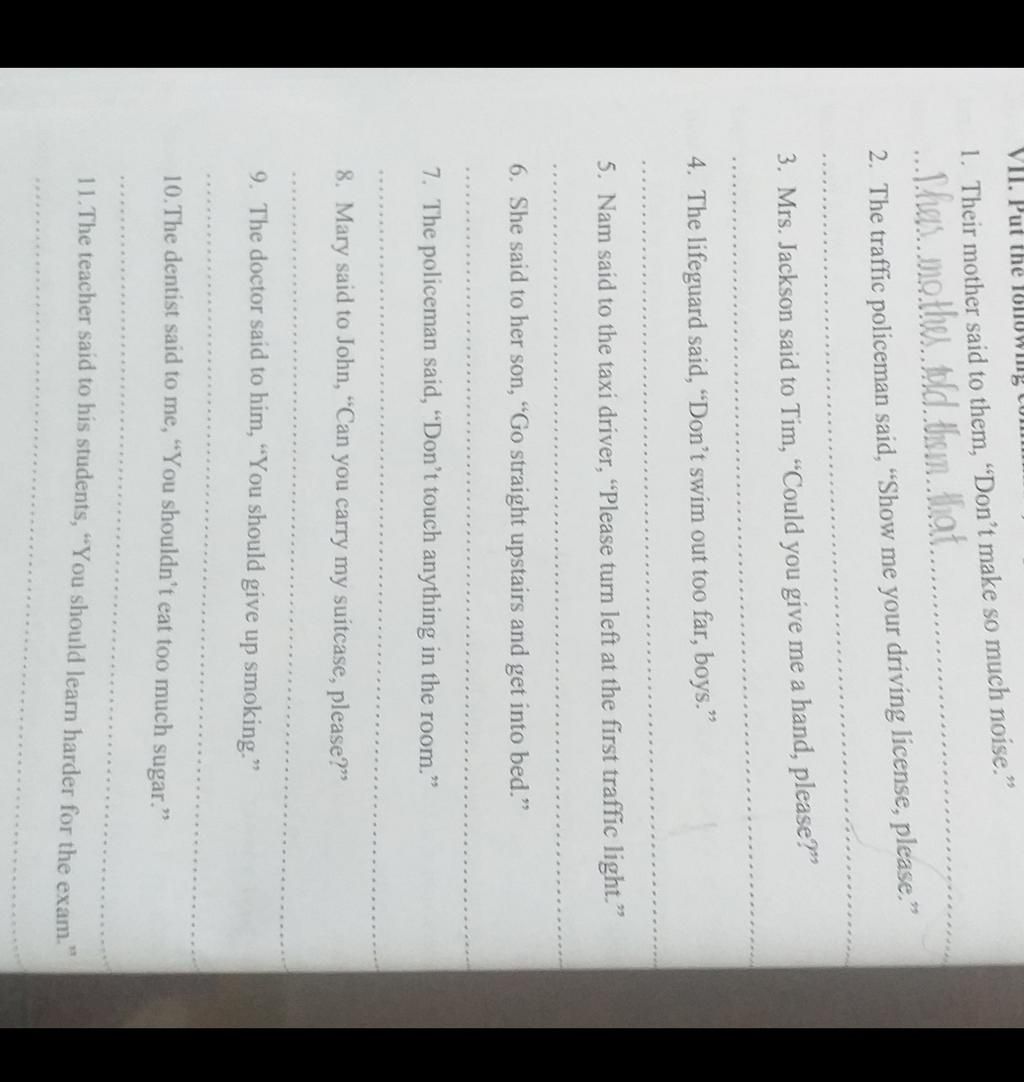 VII. Put the following
1. Their mother said to them, “Don’t make so much noise.”
mother told them that
2. The traffic policeman said, “Show me your driving license, please.”
3. Mrs. Jackson said to Tim, “Could you give me a hand, please?”
4. The lifeguard said, “Don’t swim out too far, boys.”
5. Nam said to the taxi driver, “Please turn left at the first traffic light.”
6. She said to her son, “Go straight upstairs and get into bed.”
7. The policeman said, “Don’t touch anything in the room.”
8. Mary said to John, “Can you carry my suitcase, please?”
9. The doctor said to him, “You should give up smoking.”
10. The dentist said to me, “You shouldn’t eat too much sugar.”
11. The teacher said to his students, “You should learn harder for the exam.”